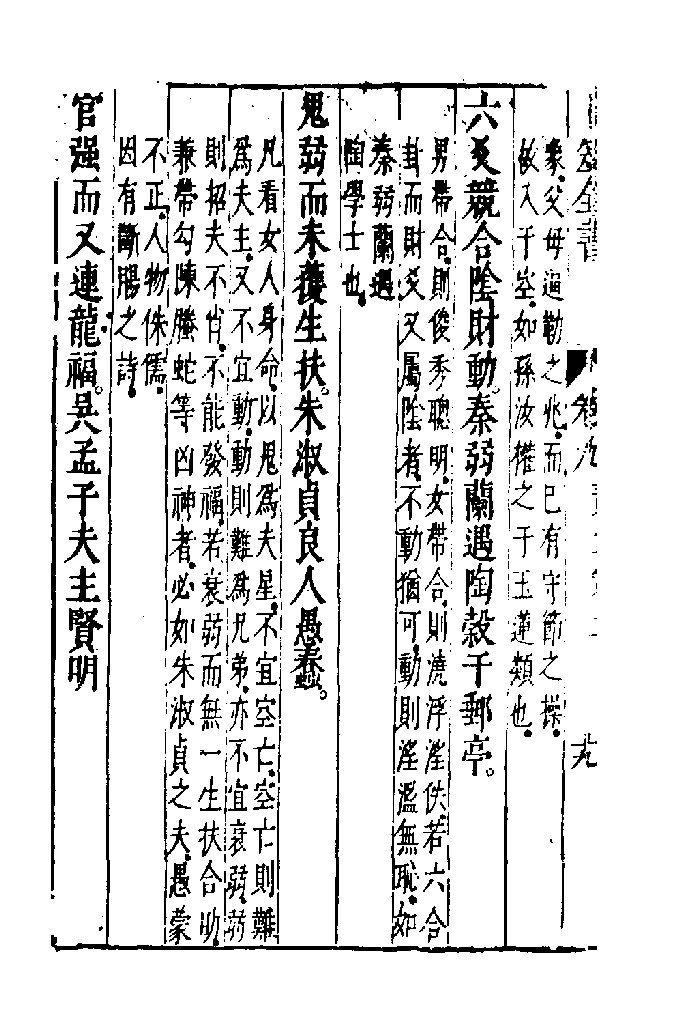 卜筮全書 卷九 十九
象父母逼勒之兆而已有守節之操
故入于空如孫汝權之于玉蓮類也
六爻競合陰財動秦弱蘭遇陶穀于郵亭
男帶合則俊秀聰明女帶合則澆浮淫佚若六合
卦而財爻又屬陰者不動猶可動則淫濫無恥如
秦弱蘭遇
陶學士也
鬼弱而未獲生扶朱淑貞良人愚蠢
凡看女人身命以鬼爲夫星不宜空亡空亡則難
爲夫主又不宜動動則難爲兄弟亦不宜衰弱弱
則招夫不肖不能發福若衰弱而無一生扶合助
兼帶勾陳螣蛇等凶神者必如朱淑貞之夫愚蒙
不正人物侏儒
因有斷腸之詩
官强而又連龍福吳孟子夫主賢明